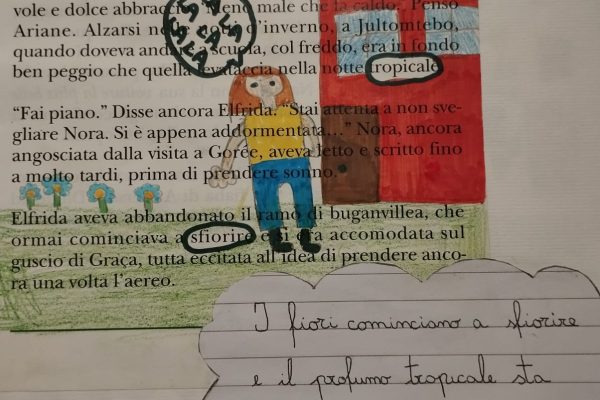 vole e dolce abbraccio. "Meno male che fa caldo." Pensò
Ariane. Alzarsi nelle d'inverno, a Jultomtebo,
quando doveva andare a scuola, col freddo, era in fondo
ben peggio che quella levataccia nella notte tropicale
LA LA
LA
"Fai piano." Disse ancora Elfrida. "Stai attenta a non sve-
gliare Nora. Si è appena addormentata…" Nora, ancora
angosciata dalla visita a Gorée, aveva letto e scritto fino
a molto tardi, prima di prendere sonno.
Elfrida aveva abbandonato il ramo di buganvillea, che
ormai cominciava a sfiorire e si era accomodata sul
guscio di Graça, tutta eccitata all'idea di prendere anco-
ra una volta l'aereo.
I fiori cominciano a sfiorire
e il profumo tropicale sta